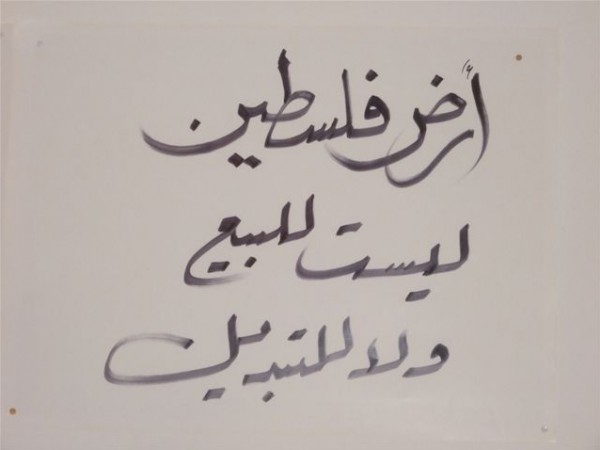 أرض فلسطين
ليست للبيع
ولا للتبديل